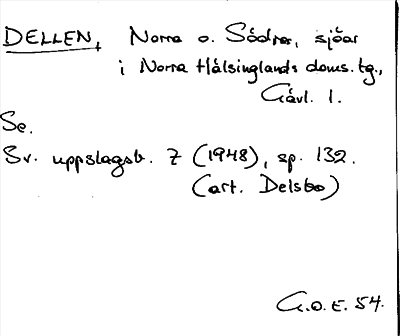 DELLEN, Norra o. Södra, sjöar
i Norra Hälsinglands doms.tg.,
Gävl. l.
Se.
Sv. uppslagsb. 7 (1948), sp. 132.
(art. Delsbo)
G.O.E. 54.